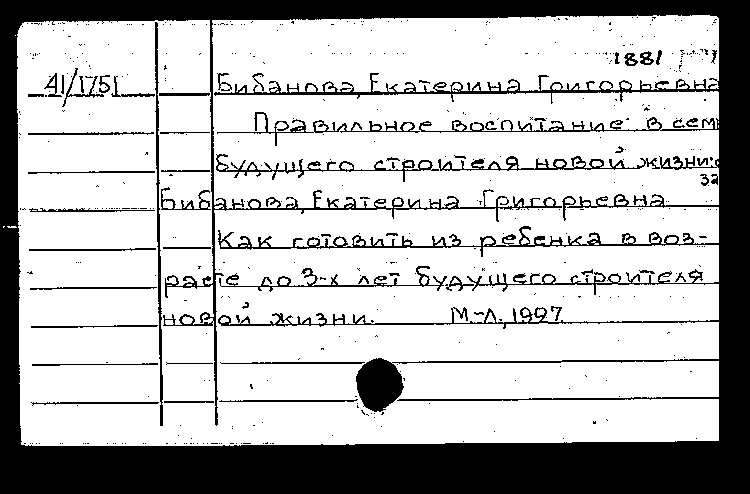 1881
41/1751 Бибанова, Екатерина Григорьевна
Правильное воспитание в сем
будущего строителя новой жизни:
32
Бибанова, Екатерина Григорьевна
Как готовить из ребенка в воз-
расте до 3-х лет будущего строителя
новой жизни. М.-Л., 1927